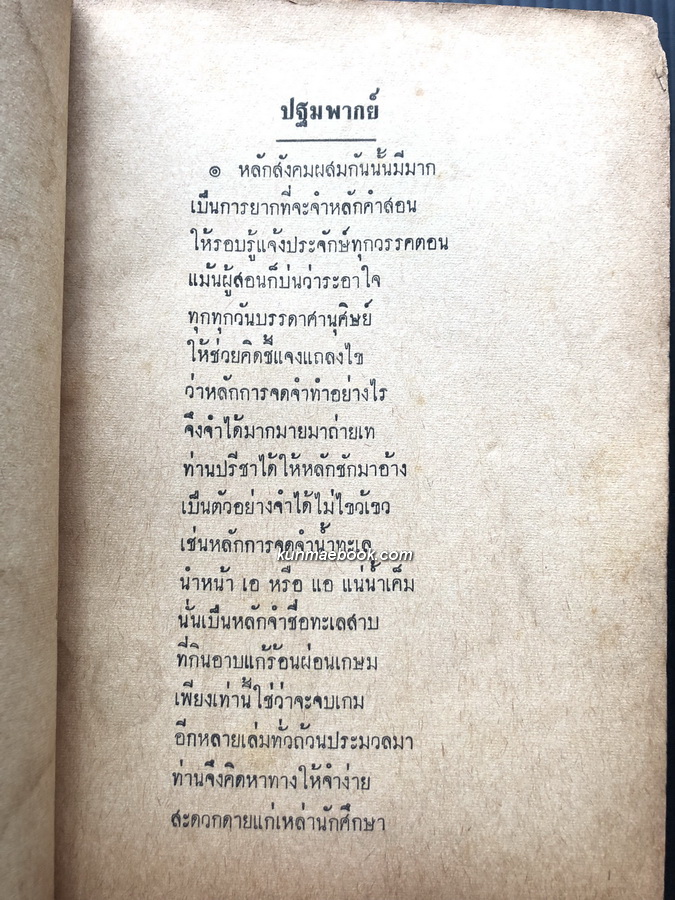 ปฐมพากย์
๑ หลักสังคมผสมกันนั้นมีมาก
เป็นการยากที่จะจำหลักคำสอน
ให้รอบรู้แจ้งประจักษ์ทุกวรรคตอน
แม้นผู้สอนก็บ่นว่าระอาใจ
ทุกทุกวันบรรดาศานุศิษย์
ให้ช่วยคิดชี้แจงแถลงไข
ว่าหลักการจดจำทำอย่างไร
จึงจำได้มากมายมาถ่ายเท
ท่านปรีชาได้ให้หลักชักมาอ้าง
เป็นตัวอย่างจำได้ไม่ไขว้เขว
เช่นหลักการจดจำน้ำทะเล
kunmaebook.com
นำหน้า เอ หรือ แอ แน่น้ำเค็ม
นั่นเป็นหลักจำชื่อทะเลสาบ
ที่กินอาบแก้ร้อนผ่อนเกษม
เพียงเท่านี้ใช่ว่าจะจบเกม
อีกหลายเล่มทั่วถ้วนประมวลมา
ท่านจึงคิดหาทางให้จำง่าย
สะดวกดายแก่เหล่านักศึกษา